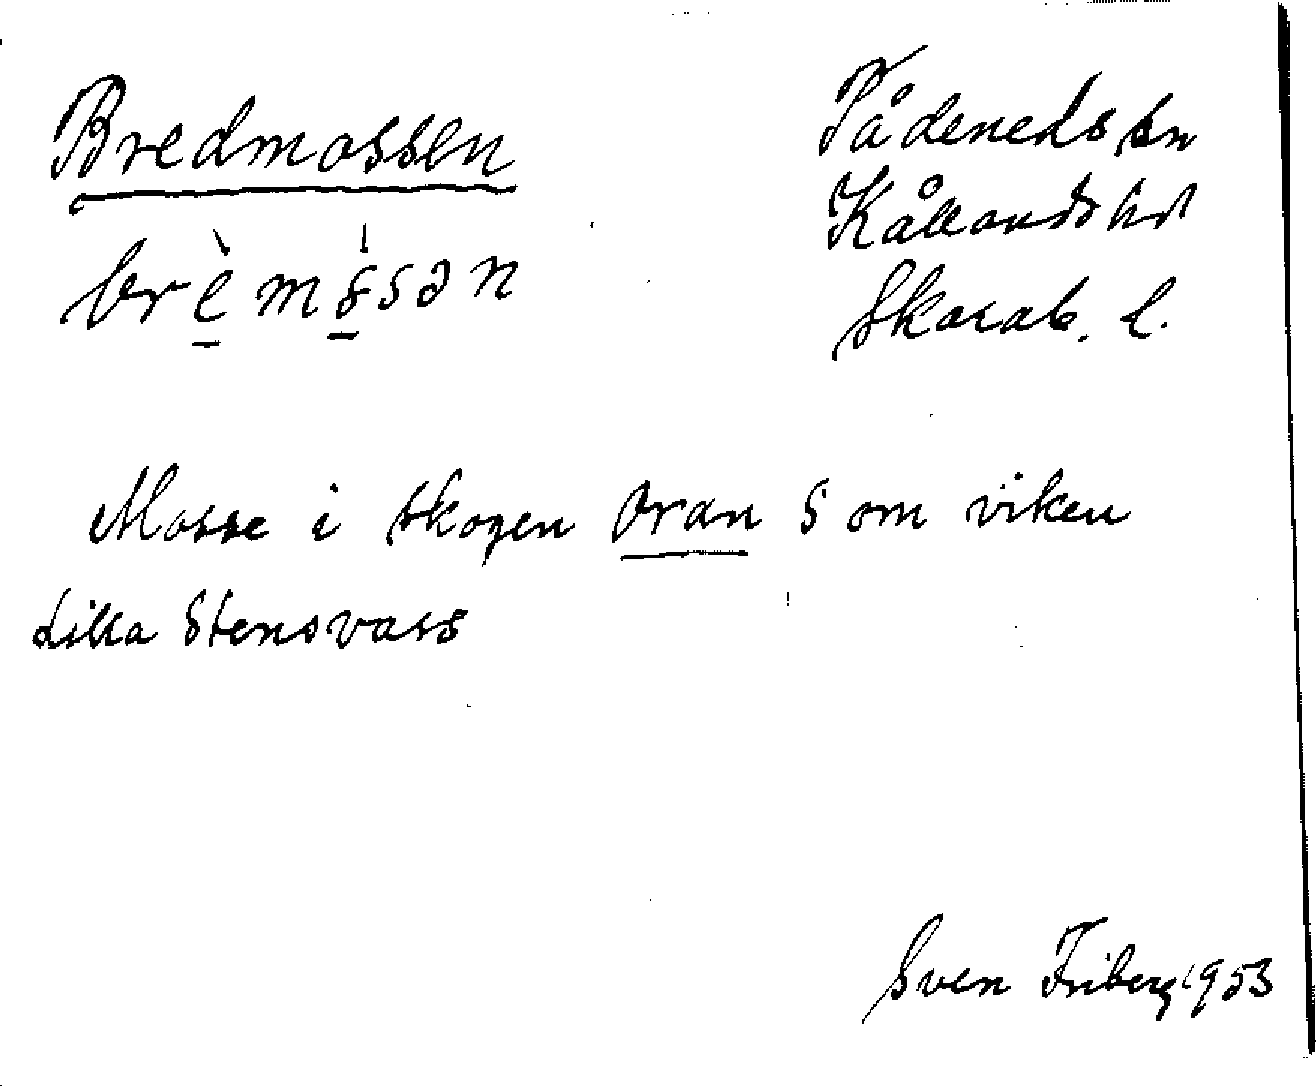 Bredmossen
Tådeneds sn
Kållands hd
Skarab. l.
Mosse i skogen Oran S om viken
Lilla Stensvass
Sven Friberg 1953